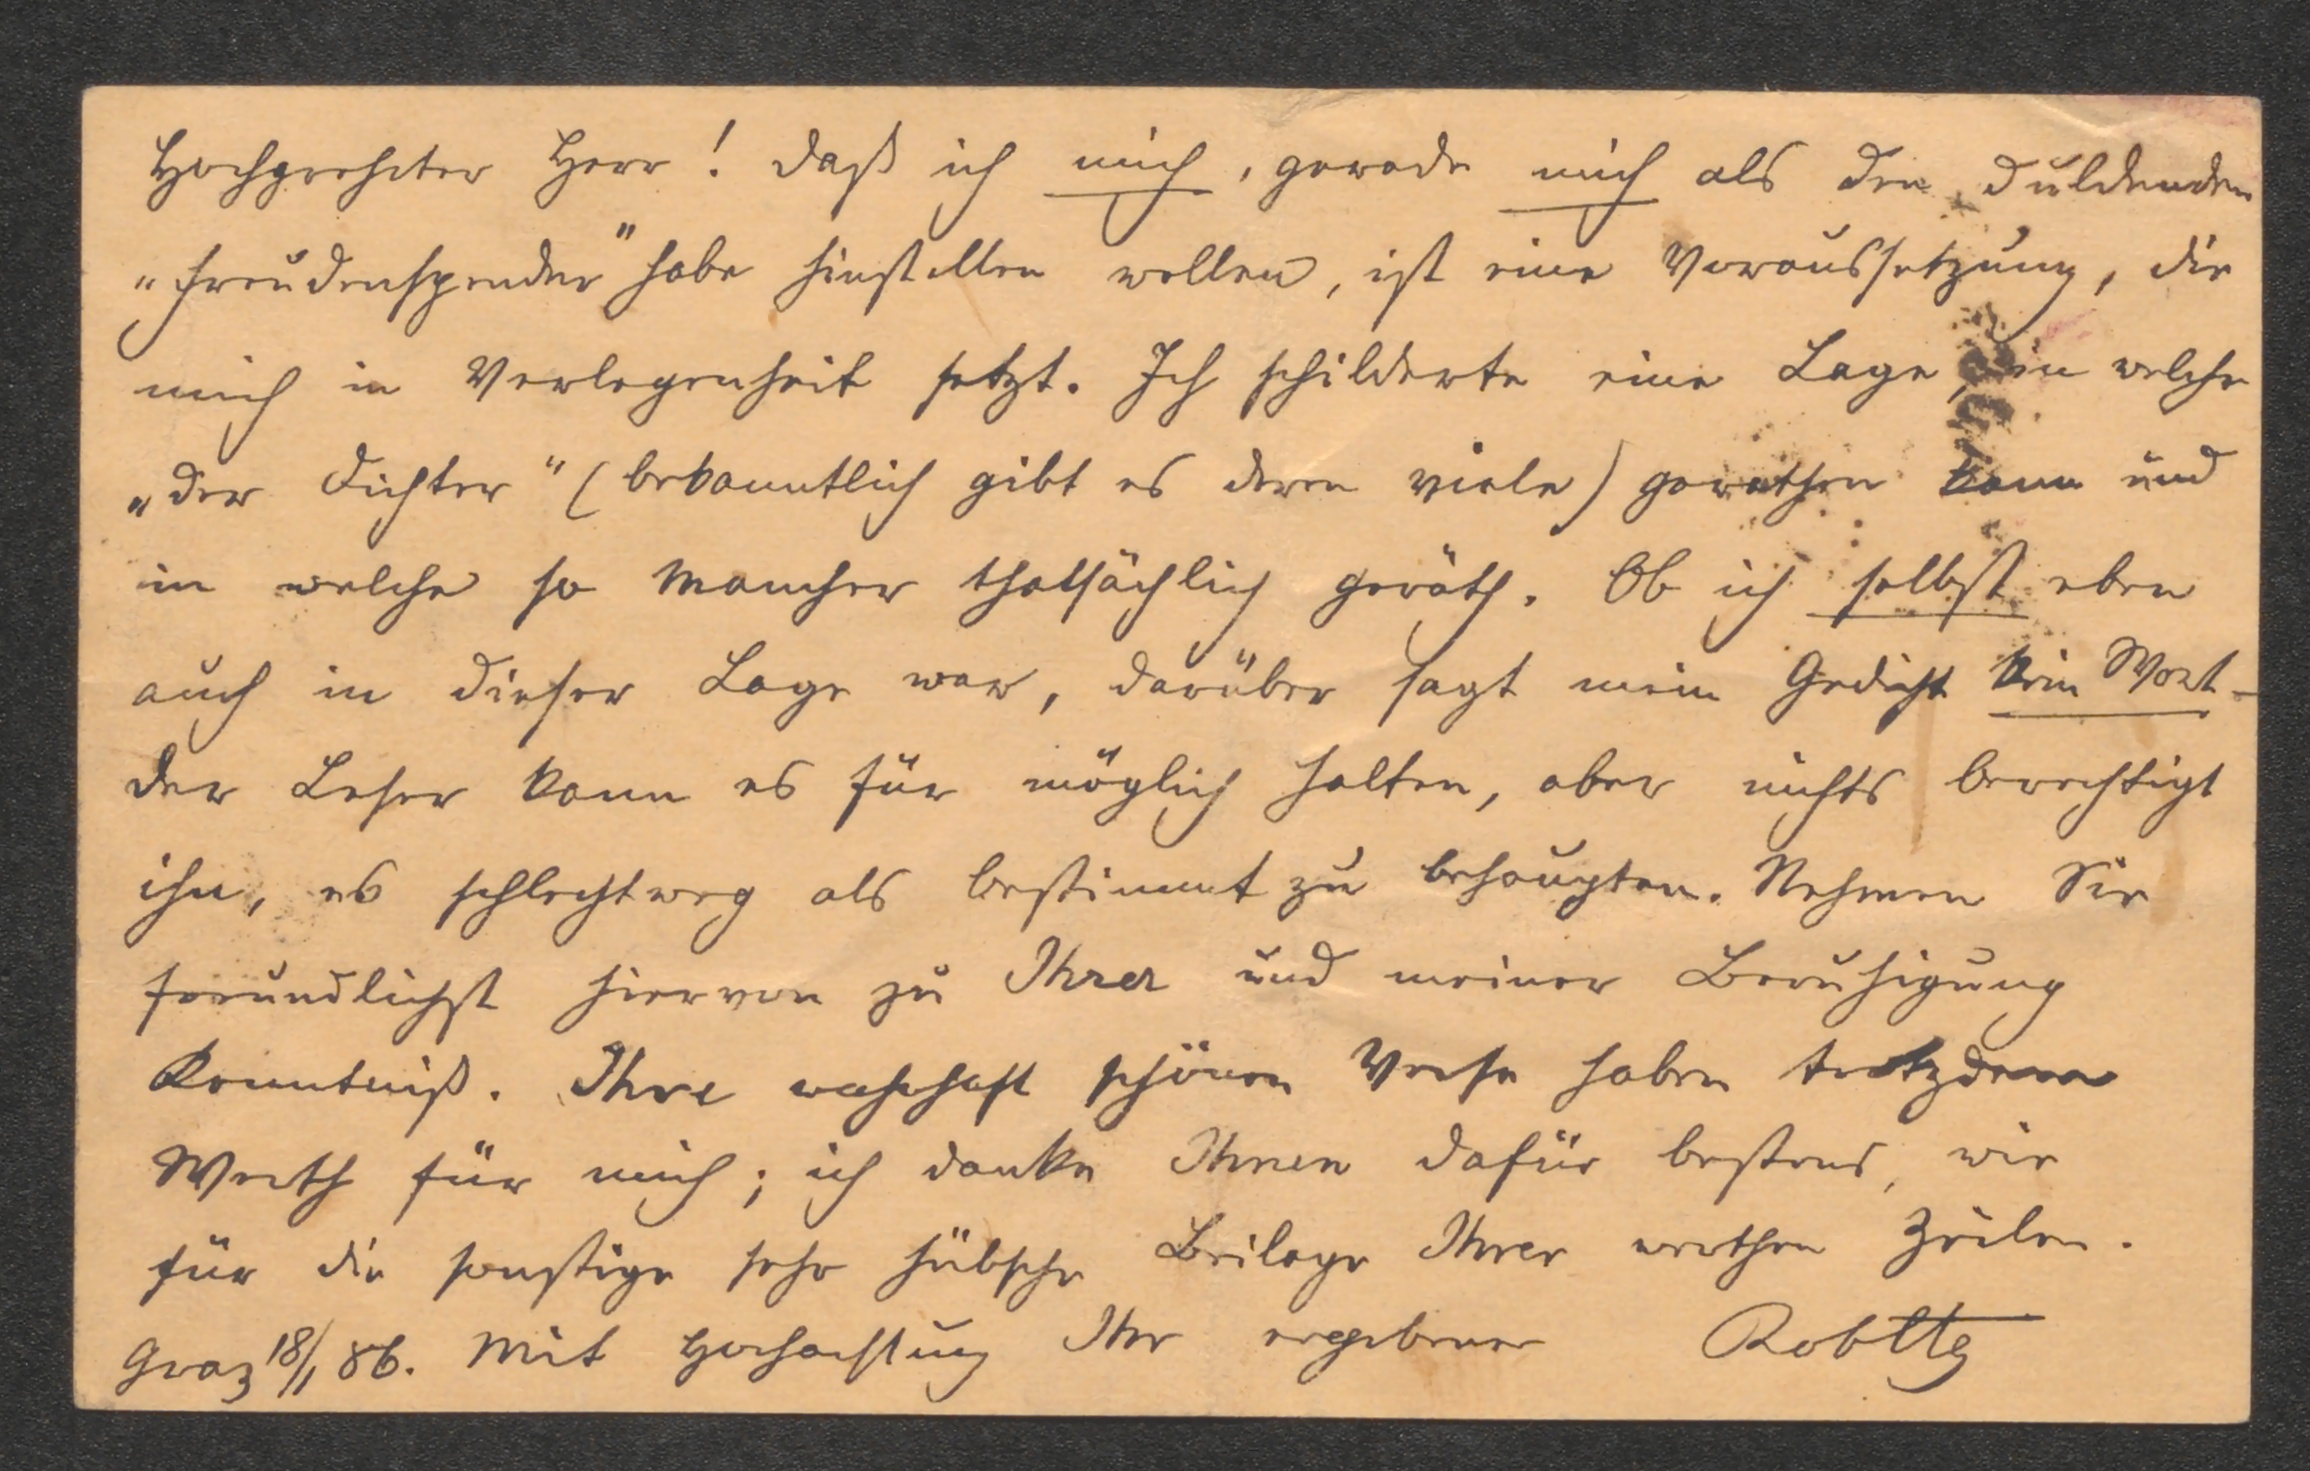 Hochgeehrter Herr! Daß ich mich, gerade mich als den duldenden
„Freudenspender“ habe hinstellen wollen, ist eine Voraussetzung, die
mich in Verlegenheit setzt. Ich schilderte eine Lage, in welche
„der Dichter“ (bekanntlich gibt es deren viele) gerathen kann und
in welche so Mancher thatsächlich geräth. Ob ich selbst eben
auch in dieser Lage war, darüber sagt mein Gedicht kein Wort –
der Leser kann es für möglich halten, aber nichts berechtigt
ihn, es schlechtweg als bestimmt zu behaupten. Nehmen Sie
freundlichst hiervon zu Ihrer und meiner Beruhigung
Kenntniß. Ihre wahrhaft schönen Verse haben trotzdem
Werth für mich; ich danke Ihnen dafür bestens, wie
für die sonstige sehr hübsche Beilage Ihrer werthen Zeilen.
Graz 18/1 86. Mit Hochachtung Ihr ergebener